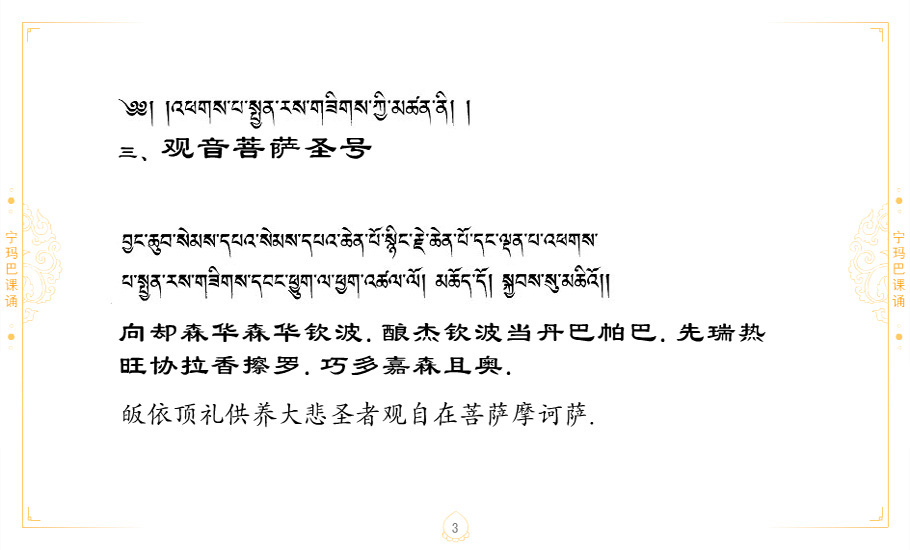 ༄༅། །འཕགས་པ་སྤྱན་རས་གཟིགས་ཀྱི་མཚན་ནི། །
三、观音菩萨圣号
宁玛巴课诵
བྱང་ཆུབ་སེམས་དཔའ་སེམས་དཔའ་ཆེན་པོ་སྙིང་རྗེ་ཆེན་པོ་དང་ལྡན་པ་འཕགས་
པ་སྤྱན་རས་གཟིགས་དབང་ཕྱུག་ལ་ཕྱག་འཚལ་ལོ། མཆོད་དོ། སྐྱབས་སུ་མཆིའོ།།
向却森华森华钦波.酿杰钦波当丹巴帕巴.先瑞热
旺协拉香擦罗.巧多嘉森且奥.
皈依顶礼供养大悲圣者观自在菩萨摩诃萨.
宁玛巴课诵
3